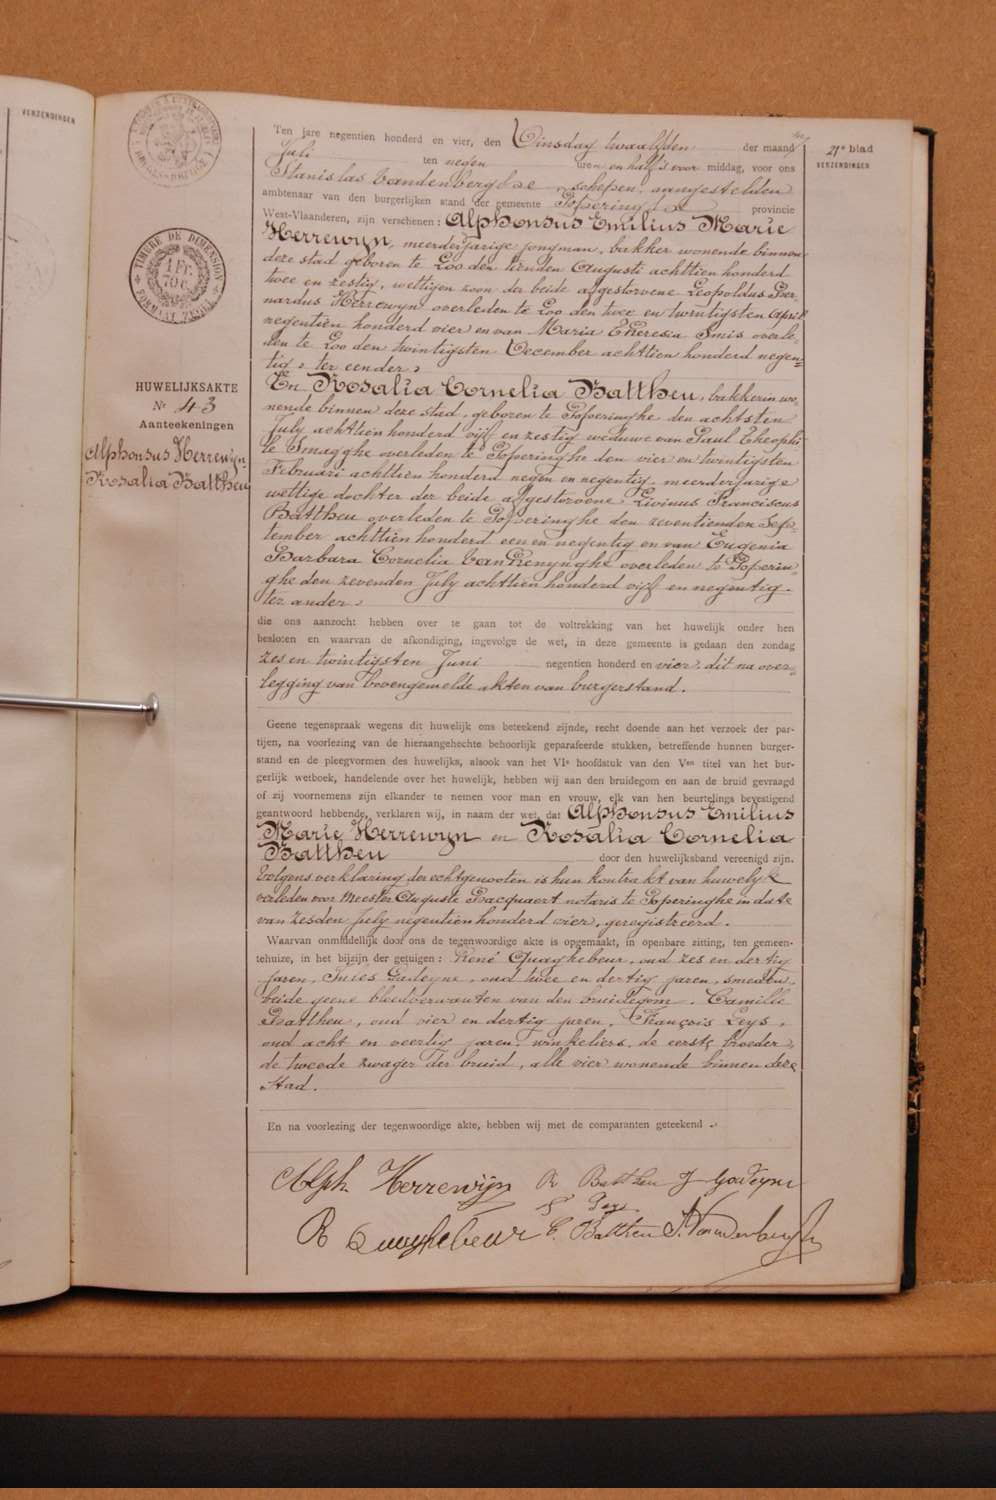 VERZENDINGEN
TIMBRE DE DIMENSION
1 FR.
70 C.
FORMAAT ZEGEL
21e blad
VERZENDINGEN
HUWELIJKSAKTE
Nr 43
Aanteekeningen
Alphonsus Herrewyn
Rosalia Battheu
Ten jare negentien honderd en vier, den Dinsdag twaalfden der maand
Juli ten negen uren en half 's voor middag, voor ons
Stanislas Vandenberghe, schepen, aangestelden
ambtenaar van den burgerlijken stand der gemeente Poperinghe provincie
West-Vlaanderen, zijn verschenen : Alphonsus Emilius Marie
Herrewyn, meerderjarige jongman, bakker wonende binnen
deze stad geboren te Loo den tienden Augusti achttien honderd
twee en zestig, wettigen zoon der beide afgestorvene Leopoldus Ber-
nardus Herrewyn overleden te Loo den twee en twintigsten April
negentien honderd vier en van Maria Theresia Smis overle-
den te Loo den twintigsten December achttien honderd negen-
tig, ter eender,
En Rosalia Cornelia Battheu, bakkerin wo-
nende binnen deze stad, geboren te Poperinghe den achtsten
July achttien honderd vijf en zestig weduwe van Paul Theophi-
le Smagghe overleden te Poperinghe den vier en twintigsten
Februari achttien honderd negen en negentig, meerderjarige
wettige dochter der beide afgestorvene Livinus Franciscus
Battheu overleden te Poperinghe den zeventienden Sep-
tember achttien honderd een en negentig en van Eugenia
Barbara Cornelia VanRenynghe overleden te Poperin-
ghe den zevenden July achttien honderd vijf en negentig.
ter ander,
die ons aanzocht hebben over te gaan tot de voltrekking van het huwelijk onder hen
besloten en waarvan de afkondiging, ingevolge de wet, in deze gemeente is gedaan den zondag
zes en twintigsten Juni negentien honderd en vier, dit na over-
legging van bovengemelde akten van burgerstand.
Geene tegenspraak wegens dit huwelijk ons beteekend zijnde, recht doende aan het verzoek der par-
tijen, na voorlezing van de hieraangehechte behoorlijk geparafeerde stukken, betreffende hunnen burger-
stand en de pleegvormen des huwelijks, alsook van het VIe hoofdstuk van den Ven titel van het bur-
gerlijk wetboek, handelende over het huwelijk, hebben wij aan den bruidegom en aan de bruid gevraagd
of zij voornemens zijn elkander te nemen voor man en vrouw, elk van hen beurtelings bevestigend
geantwoord hebbende, verklaren wij, in naam der wet, dat Alphonsus Emilius
Marie Herrewyn en Rosalia Cornelia
Battheu door den huwelijksband vereenigd zijn.
Volgens verklaring der echtgenooten is hun kontrakt van huwelyk
verleden voor Meester Auguste Bacquaert notaris te Poperinghe in date
van zesden July negentien honderd vier, geregistreerd.
Waarvan onmiddelijk door ons de tegenwoordige akte is opgemaakt, in openbare zitting, ten gemeen-
tehuize, in het bijzijn der getuigen : René Quaghebeur, oud zes en dertig
jaren, Gadeyne, oud twee en dertig jaren, smeden,
beide geene bloedverwanten van den bruidegom, Camille
Battheu, oud vier en dertig jaren, François Leys,
oud acht en veertig jaren, winkeliers, de eerste broeder,
de tweede zwager der bruid, alle vier wonende binnen deze
stad.
En na voorlezing der tegenwoordige akte, hebben wij met de comparanten geteekend.
Alph. Herrewijn R Battheu J Gadeyne
F Leys
R Quaghebeur C. Battheu S. Vandenberghe